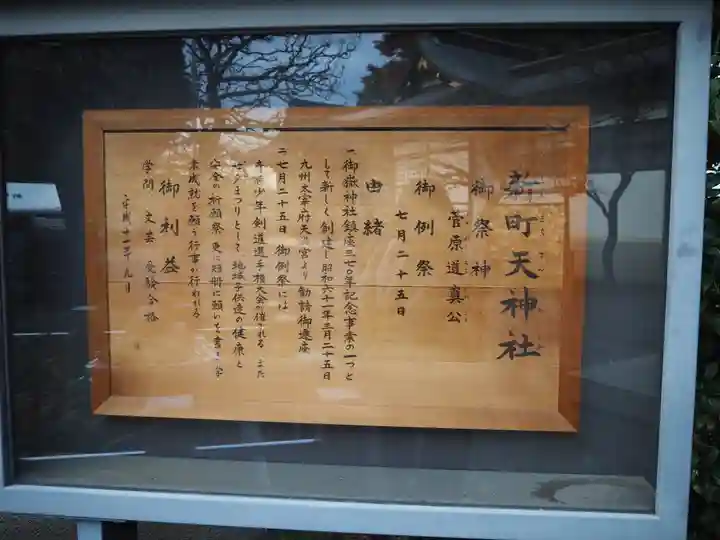 新町天神社
御祭神
菅原道真公
御例祭
七月二十五日
由緒
一 御嶽神社鎮座三七〇年記念事業の一つと
して新しく創建し昭和六十一年三月二十五日
九州太宰府天満宮より勧請御遷座
二 七月二十五日 御例祭には
青少年剣道選手権大会が催される また
七夕まつりとして地域子供達の健康と
安全の祈願祭 更に短冊に願いを書き学
業成就を願う行事が行われる
御利益
学問 文芸 受験合格
平成十一年九月